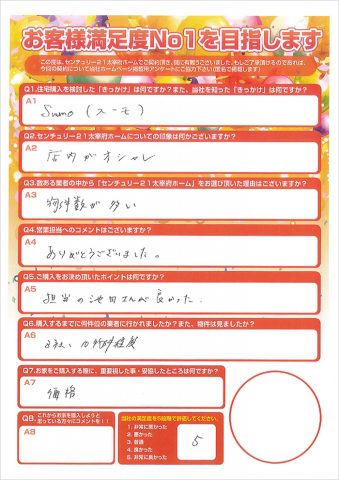 お客様満足度No1を目指します
この度は、センチュリー21太宰府ホームでご契約頂き、誠に有難うございました。もしご了承頂けるのであれば、
今回の契約について当社ホームページ掲載用アンケートにご協力下さい(匿名で掲載します)
Q1.住宅購入を検討した「きっかけ」は何ですか?また、当社を知った「きっかけ」は何ですか?
A1
Sumo (スーモ)
Q2.センチュリー21太宰府ホームについての印象は何かございますか?
A2
店内がオシャレ
Q3.数ある業者の中から「センチュリー21太宰府ホーム」をお選び頂いた理由はございますか?
A3
物件数が多い
Q4.営業担当へのコメントはございますか?
A4
ありがとうございました。
Q5.ご購入をお決め頂いたポイントは何ですか?
A5
担当の池田さんが良かった.
Q6.購入するまでに何件位の業者に行かれましたか?また、物件は見ましたか?
A6
3社、10件程度
Q7.お家をご購入する際に、重要視した事・妥協したところは何ですか?
A7
価格
Q8.
これからお家を購入しようと
思っている方々にコメントを!!
A8
当社の満足度を5段階で評価してください。
1. 非常に悪かった
2. 悪かった
3. 普通
4. 良かった
5. 非常に良かった
5